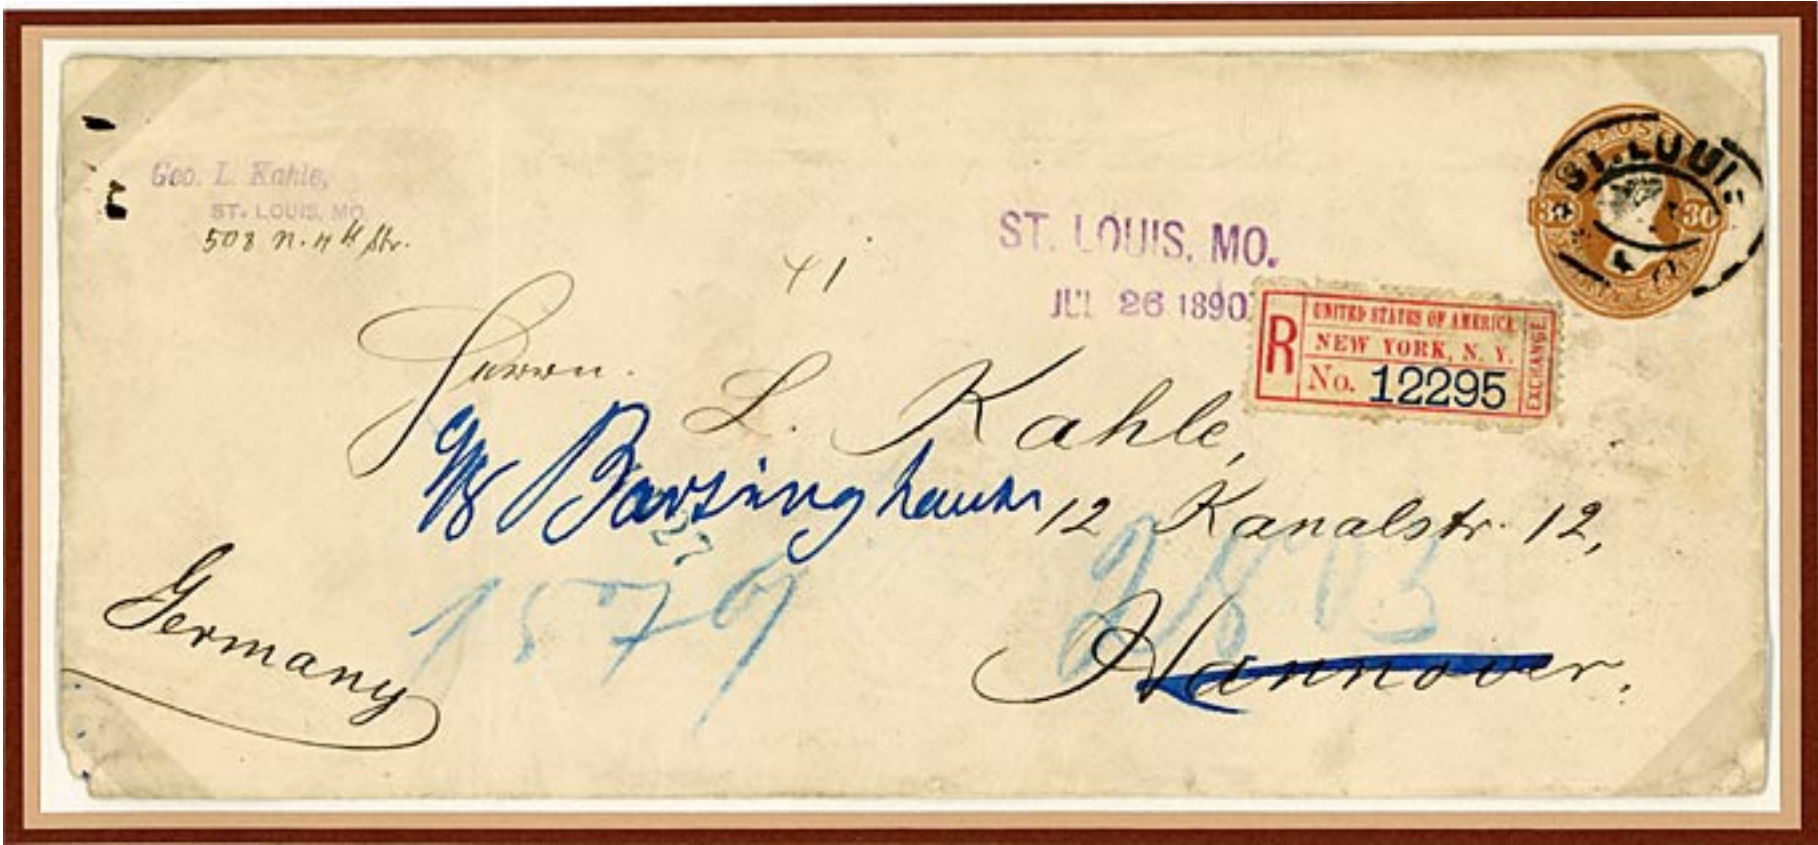 Geo. L. Kahle,
ST. LOUIS, MO
508 N. 4th Str.
ST. LOUIS
30 30
ST. LOUIS, MO.
JUL 26 1890
41
R
UNITED STATES OF AMERICA
NEW YORK, N. Y.
No. 12295
EXCHANGE
Herrn.
L. Kahle,
Barsinghausen
12 Kanalstr. 12,
1579
2803
Hannover.
Germany